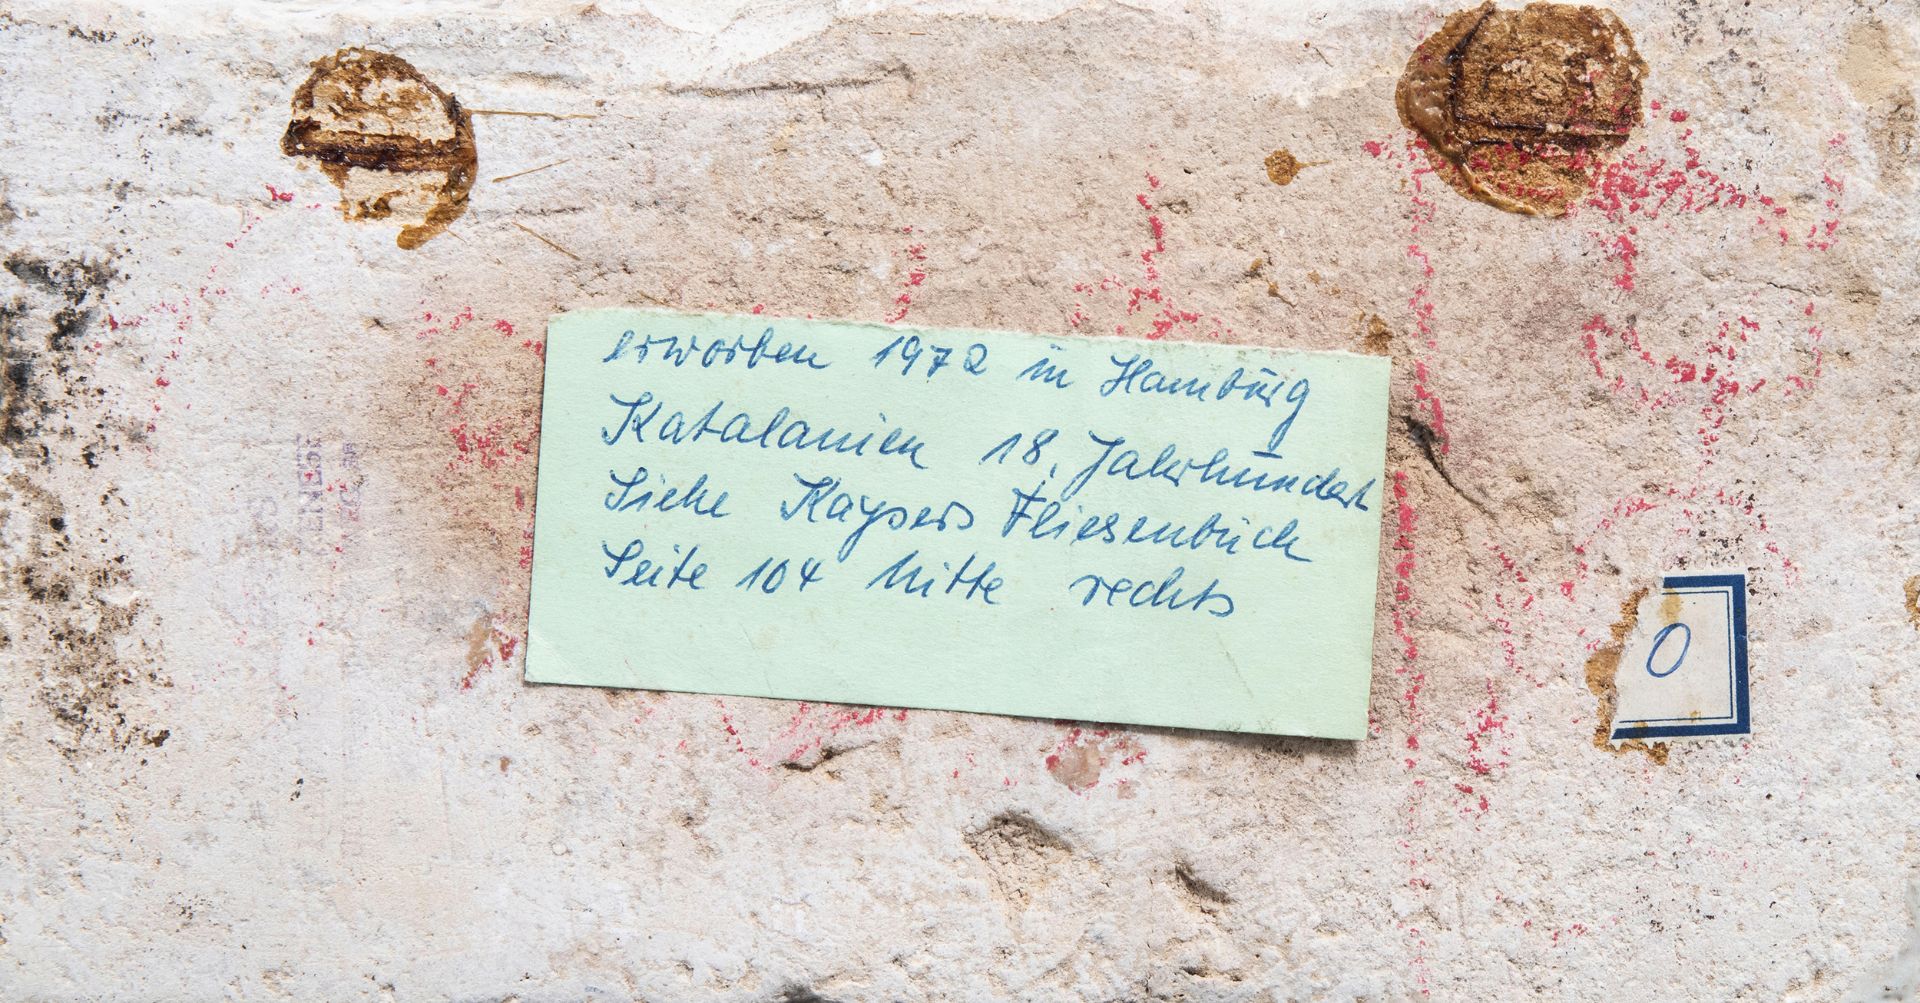 erworben 1972 in Hamburg
Katalanien 18. Jahrhundert
Siehe Kaysers Fliesenbuch
Seite 104 Mitte rechts
0